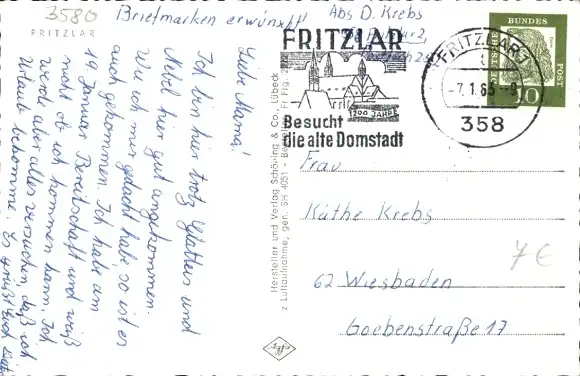 3580
FRITZLAR
Briefmarken erwünscht!
Abs D. Krebs
Liebe Mama!
Ich bin hier trotz Glatteis und
Nebel hier gut angekommen.
Wie ich mir gedacht habe, so ist es
auch gekommen. Ich habe am
19. Januar Bereitschaft und weiß
nicht ob ich kommen kann. Ich
werde aber alles versuchen, daß ich
Urlaub bekomme. Es grüßt Euch
Hersteller und Verlag Schöning & Co., Lübeck
z Luftaufnahme, gen. SH 4051 -
FRITZLAR
1200 JAHRE
Besucht
die alte Domstadt
FRITZLAR
-7.1.65.-9
358
DEUTSCHE
BUNDES
POST
10
Frau
Käthe Krebs
62 Wiesbaden
Goebenstraße 17
7€
agfa